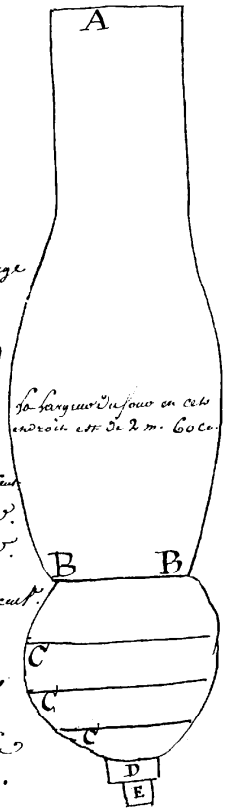 A
La largeur du four en cet
endroit est de 2 m. 60 ce.
B B
C
C
C
D
E